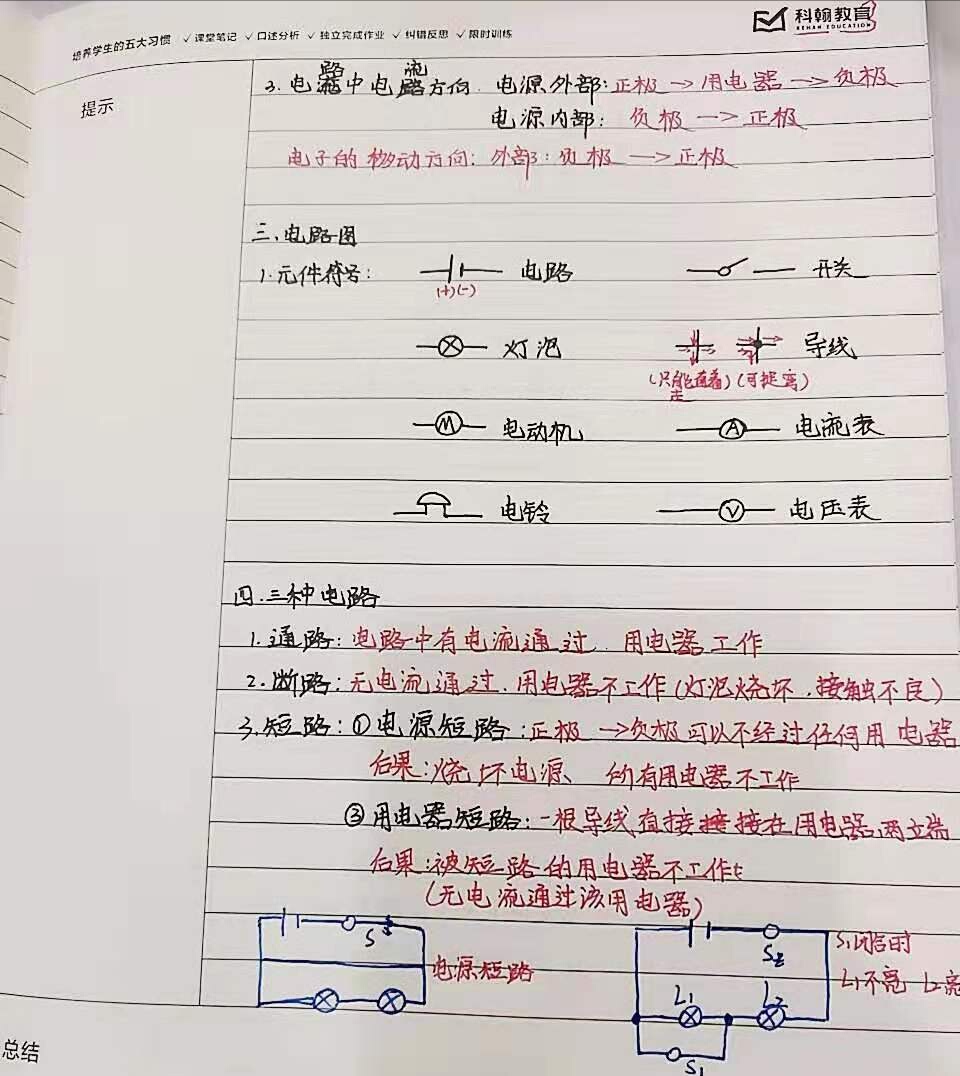 培养学生的五大习惯 ✓课堂笔记 ✓口述分析 ✓独立完成作业 ✓纠错反思 ✓限时训练
科翰教育
KEHAN EDUCATION
提示
3. 电路中电流方向. 电源外部: 正极 → 用电器 → 负极
电源内部: 负极 → 正极
电子的移动方向: 外部: 负极 → 正极
三、电路图
1. 元件符号: 电路 开关
(+)(-)
灯泡 导线
(只能直着走) (可拐弯)
M 电动机 A 电流表
电铃 V 电压表
四.三种电路
1. 通路: 电路中有电流通过. 用电器工作
2. 断路: 无电流通过. 用电器不工作(灯泡烧坏.接触不良)
3. 短路: ①电源短路: 正极→负极可以不经过任何用电器
后果: 烧坏电源、所有用电器不工作
③用电器短路: 一根导线直接接在用电器两立端
后果: 被短路的用电器不工作
(无电流通过该用电器)
S S2 S1闭合时
电源短路 L1 L2 L1不亮 L2亮
S1
总结